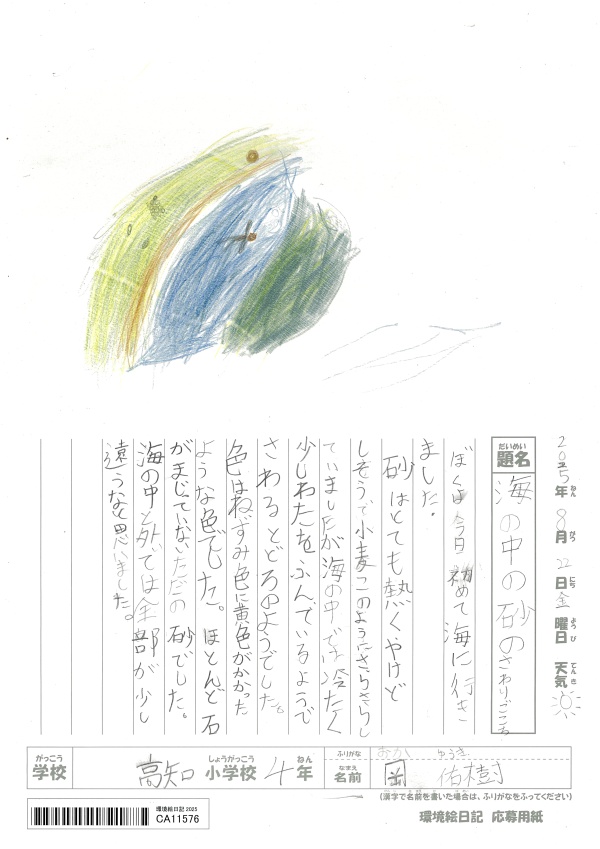 2025年 8月 22日 金曜日 天気
ねん がつ にち ようび てんき
だいめい
題名 海の中の砂のさわりごこち
ぼくは今日初めて海に行き
ました。
砂はとても熱くやけど
しそうで小麦このようにさらさらし
ていましたが海の中では冷たく
少しわたをふんでいるようで
さわるとどろのようでした。
色はねずみ色に黄色がかかった
ような色でした。ほとんど石
がまじていないただの砂でした。
海の中と外では全部が少し
違うなと思いました。
がっこう しょうがっこう ねん
学校 高知小学校 4年
ふりがな おか ゆうき
なまえ
名前 岡 佑樹
(漢字で名前を書いた場合は、ふりがなをふってください)
環境絵日記 2025
CA11576
環境絵日記 応募用紙